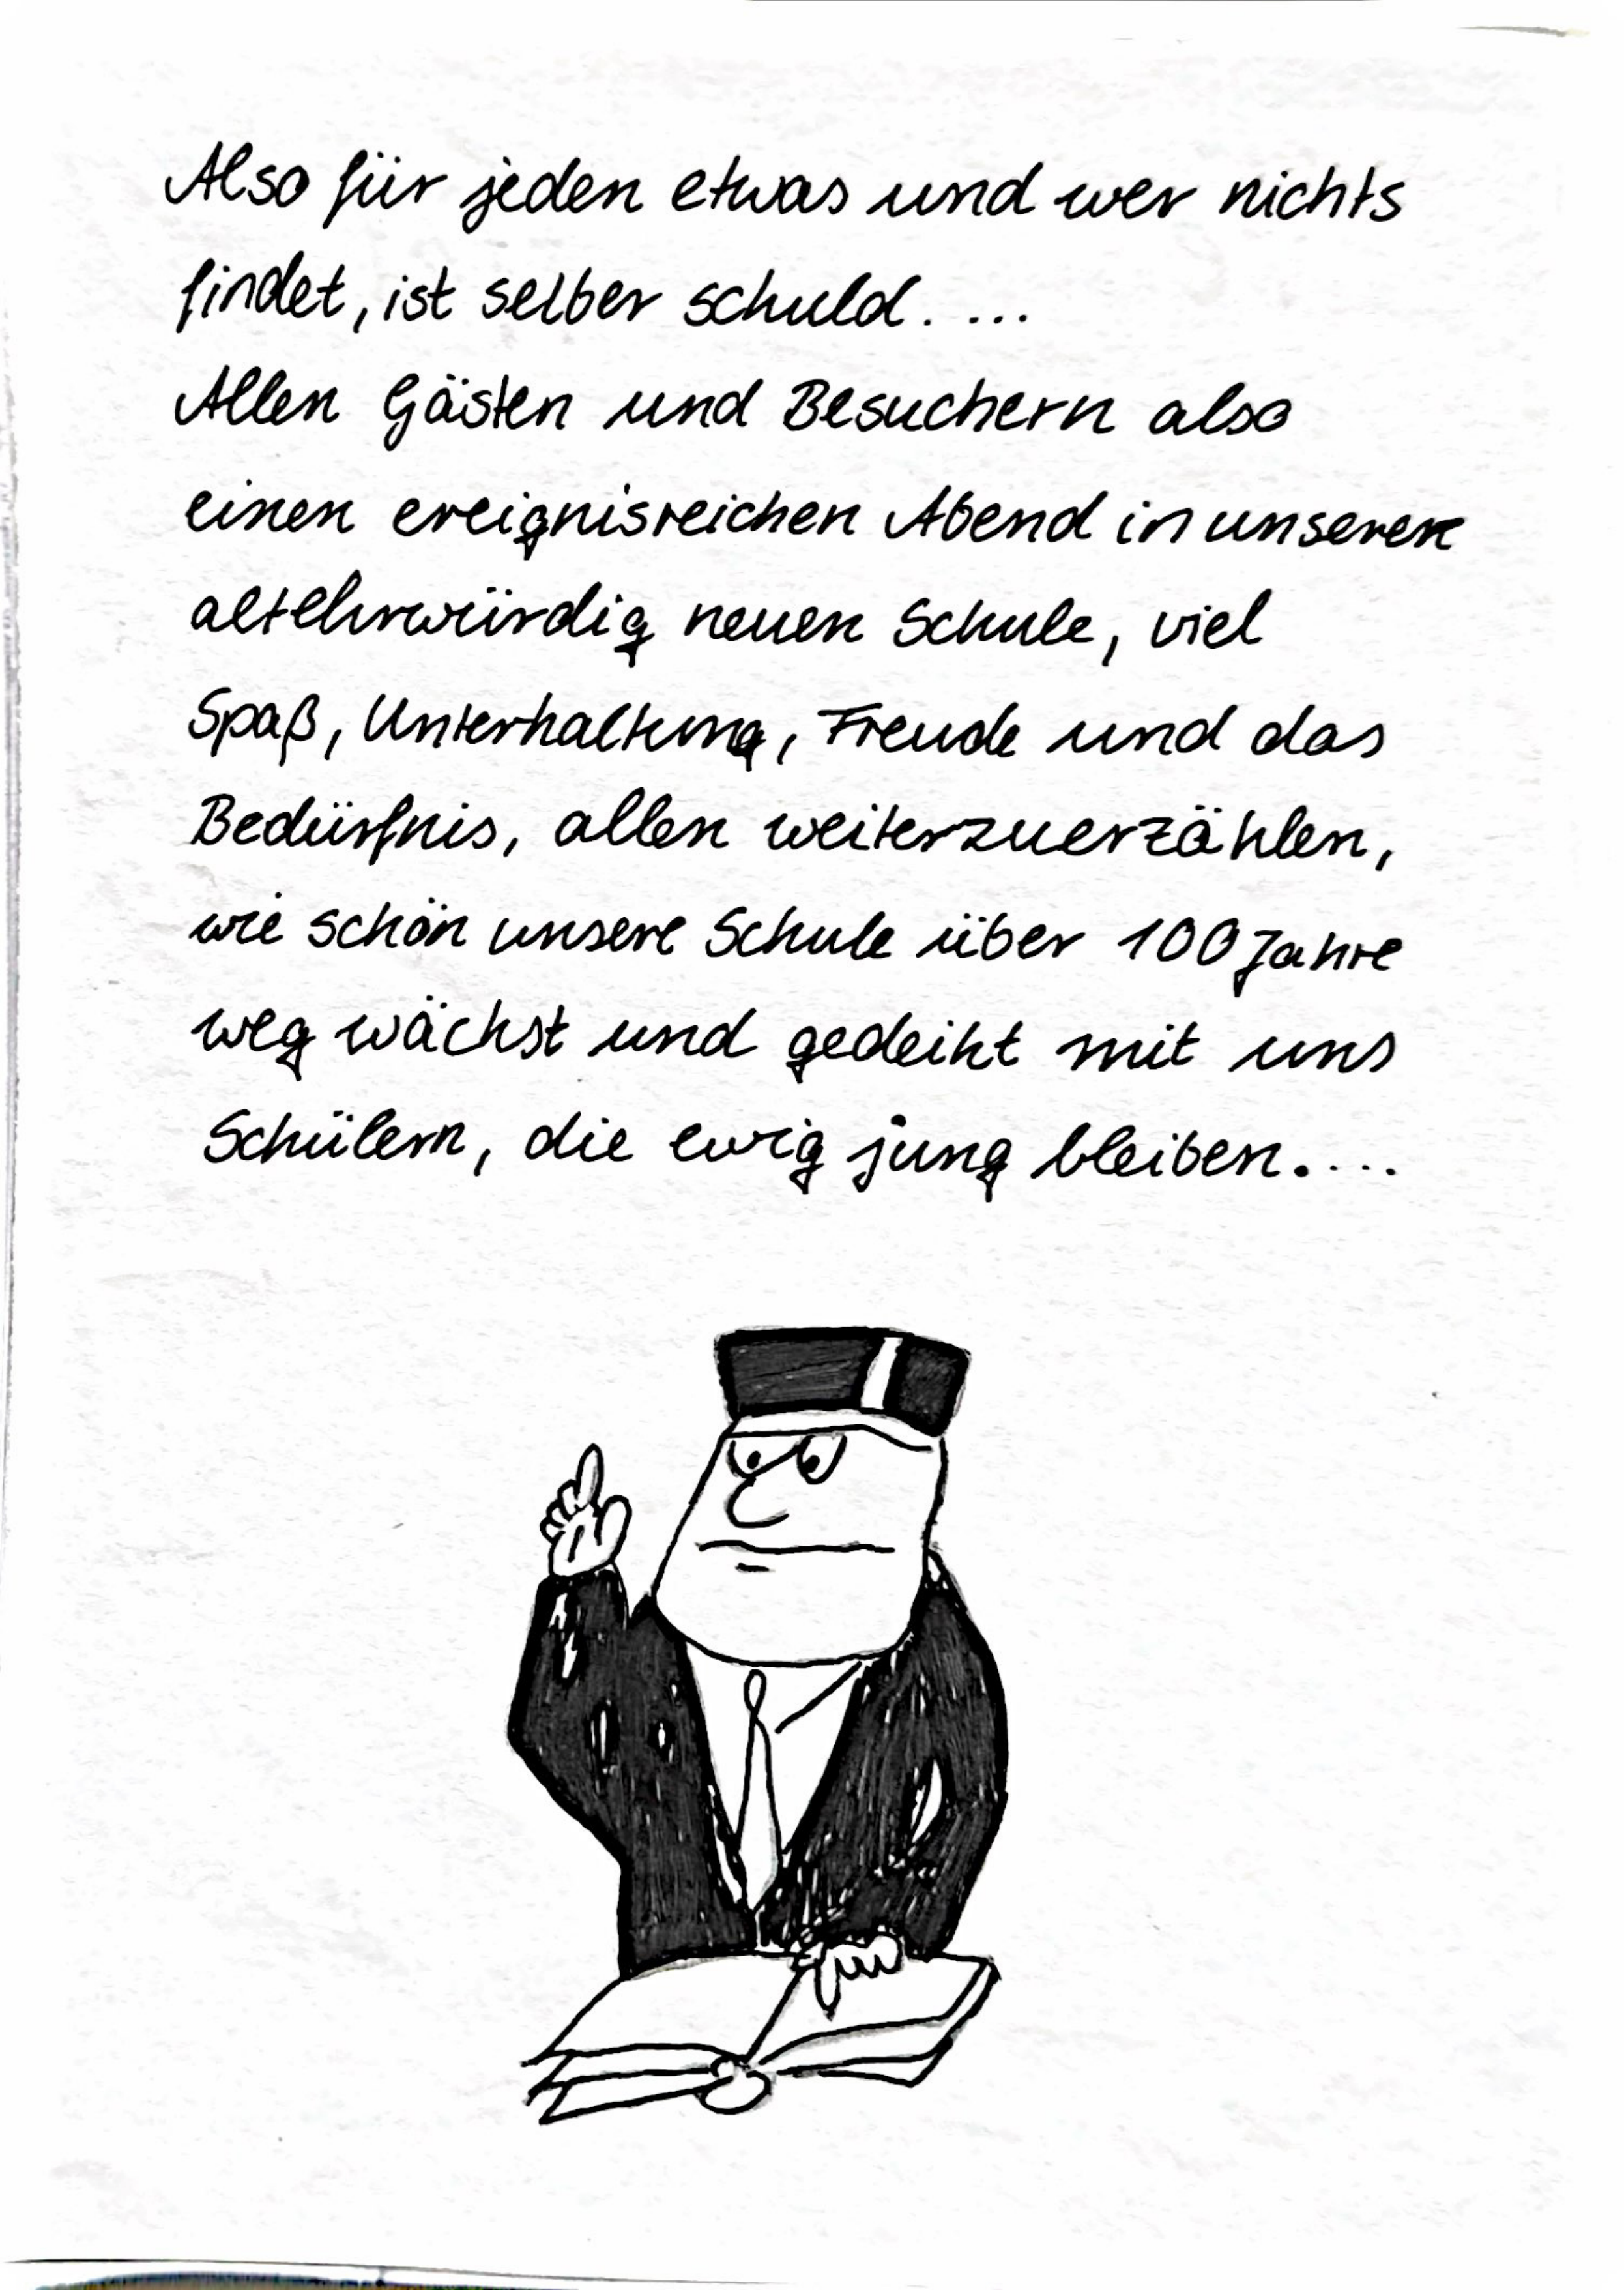 Also für jeden etwas und wer nichts
findet, ist selber schuld. ...
Allen Gästen und Besuchern also
einen ereignisreichen Abend in unserer
altehrwürdig neuen Schule, viel
Spaß, Unterhaltung, Freude und das
Bedürfnis, allen weiterzuerzählen,
wie schön unsere Schule über 100 Jahre
weg wächst und gedeiht mit uns
Schülern, die ewig jung bleiben....